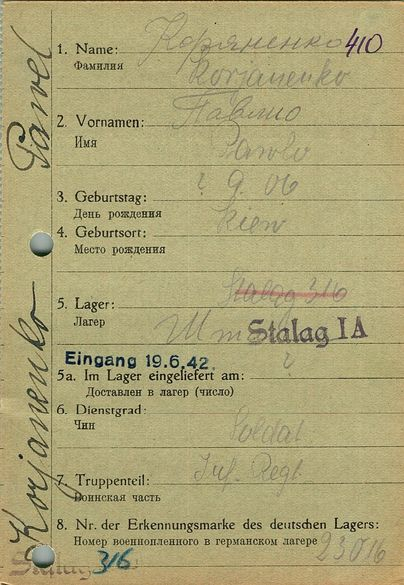 Korjanenko Pawel
410
1. Name: Коряненко
Фамилия
Korjanenko
2. Vornamen: Павло
Имя
Pawlo
3. Geburtstag: ? 9. 06
День рождения
4. Geburtsort: Kiew
Место рождения
Stalag 316
5. Lager:
Лагерь
Stalag IA
Eingang 19.6.42. ?
5a. Im Lager eingeliefert am:
Доставлен в лагер (число)
6. Dienstgrad: Soldat
Чин
7. Truppenteil: Inf. Regt.
Воинская часть
8. Nr. der Erkennungsmarke des deutschen Lagers:
Номер военнопленного в германском лагере 23016
Stalag 316